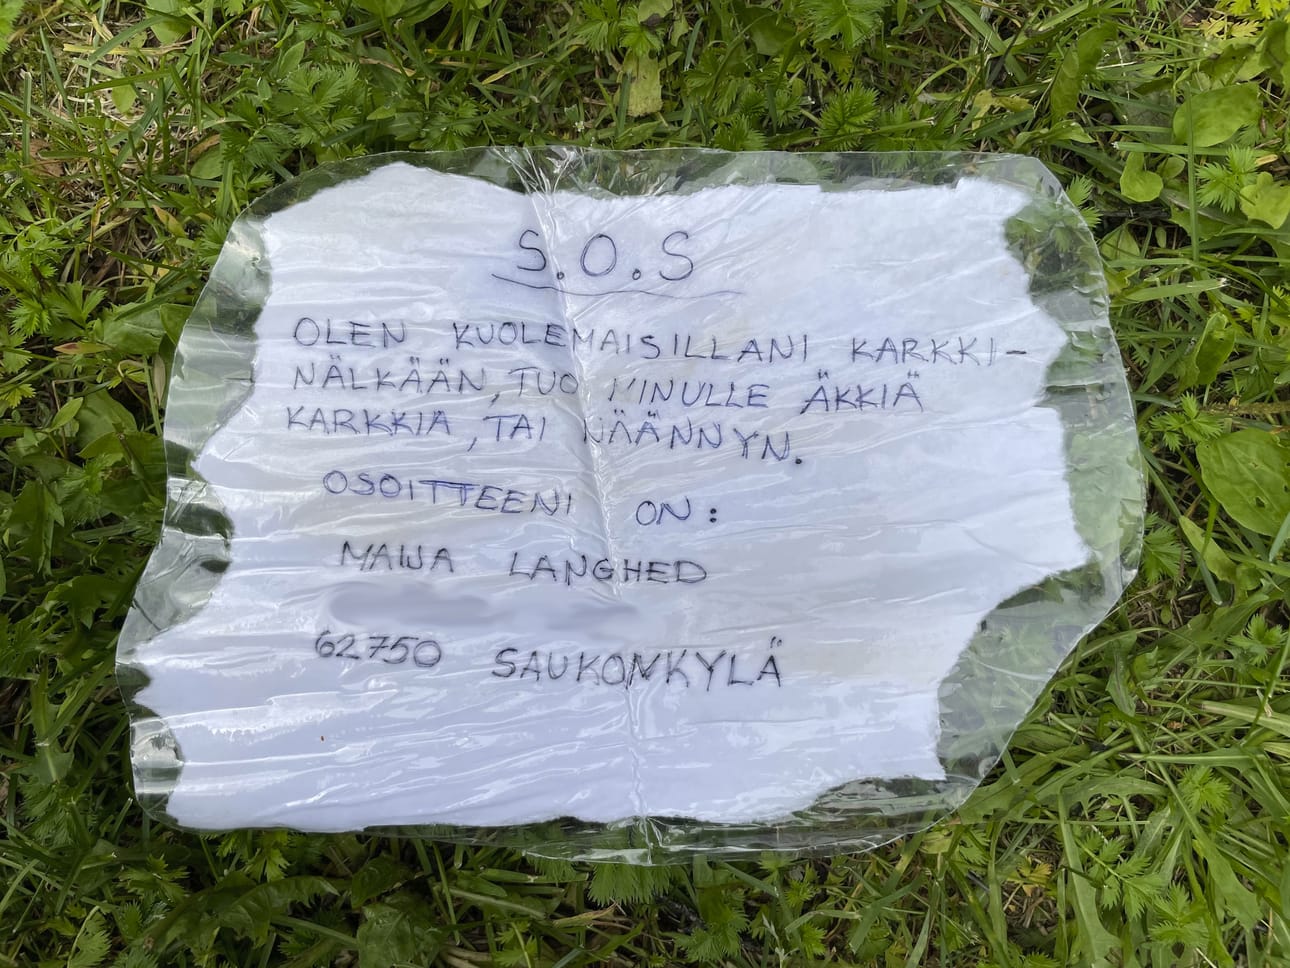 S.O.S
OLEN KUOLEMAISILLANI KARKKI-
NÄLKÄÄN, TUO MINULLE ÄKKIÄ
KARKKIA, TAI NÄÄNNYN.
OSOITTEENI ON:
LANGHED
62750 SAUKONKYLÄ